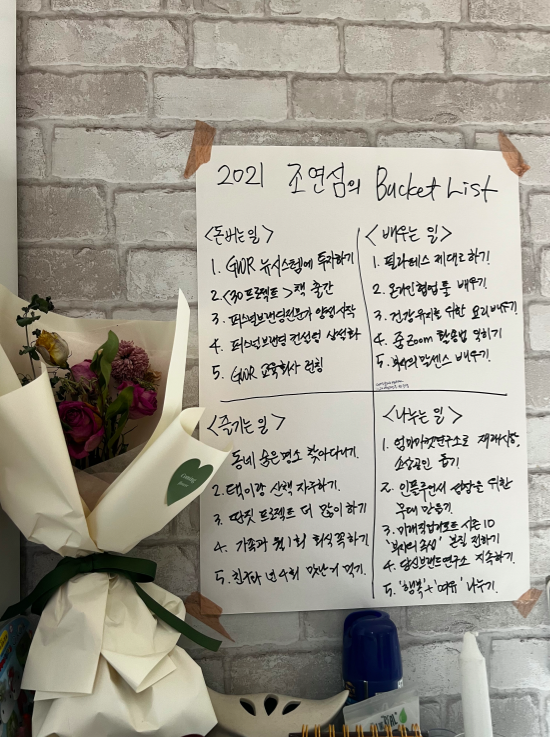 2021 조연심의 Bucket List
<돈버는 일>
1. GWR 뉴시스템에 투자하기
2. <30 프로젝트> 책 출간
3. 퍼스널브랜딩전문가 양성시작
4. 퍼스널브랜딩 컨설팅 상설화
5. GWR 교육회사 런칭
<배우는 일>
1. 필라테스 제대로하기
2. 온라인협업툴 배우기
3. 건강유지를 위한 요리배우기
4. 줌 Zoom 활용법 익히기
5. 부자의 말센스 배우기
<즐기는 일>
동네 숨은명소 찾아다니기
2. 태이랑 산책 자주하기
3. 딴짓 프로젝트 더 많이 하기
4. 가족과 월1회 회식 꼭하기
5. 친구와 년 4회 맛난거 먹기
<나누는 일>
1. 엄마마켓연구소로
소상공인 돕기
2. 인플루언서 성장을 위한
무대 만들기
3. 미래직업리포트 시즌 10
본질 전하기
4. 당신브랜드연구소 지속하기
5. '행복' + '여유' 나누기